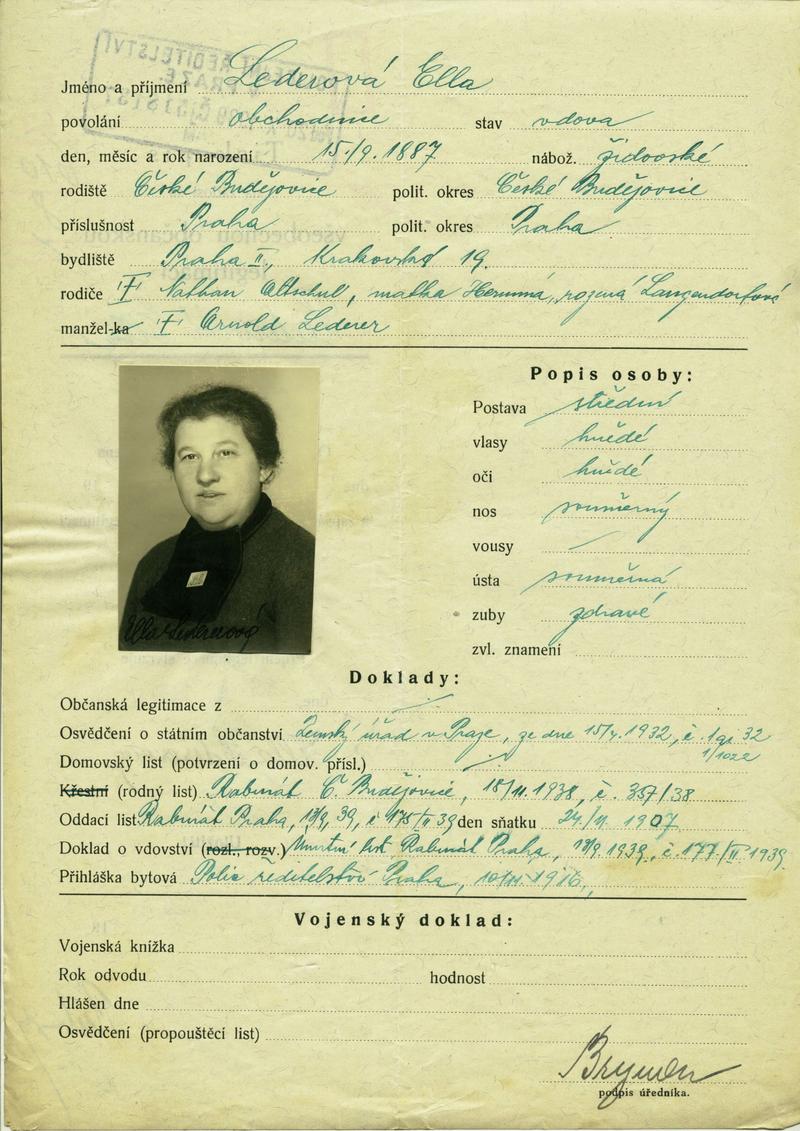 Jméno a příjmení Lederová Ella
povolání obchodnice stav vdova
den, měsíc a rok narození 15./9. 1887 nábož. židovské
rodiště České Budějovice polit. okres České Budějovice
příslušnost Praha polit. okres Praha
bydliště Praha II., Krakovská 19.
rodiče Nathan Altschul, matka Hermína, rozená Langendorfová
manžel-ka Arnold Lederer
Popis osoby:
Postava střední
vlasy hnědé
oči hnědé
nos souměrný
vousy
ústa souměrná
zuby zdravé
zvl. znamení
Ella Ledererová
Doklady:
Občanská legitimace z
Osvědčení o státním občanství Zemský úřad v Praze, ze dne 15/4. 1932, č.
Domovský list (potvrzení o domov. přísl.)
Křestní (rodný list) Rabinát Č. Budějovice, 18/11. 1938, č. 357/38
Oddací list Rabinát Praha, 39, č. 175/II 39 den sňatku 24/11. 1907
Doklad o vdovství (rozl., rozv.) Úmrtní list Rabinát Praha, 1939, č. 177/II 1939
Přihláška bytová Polic. ředitelství Praha, 1916,
Vojenský doklad:
Vojenská knížka
Rok odvodu hodnost
Hlášen dne
Osvědčení (propouštěcí list)
podpis úředníka.